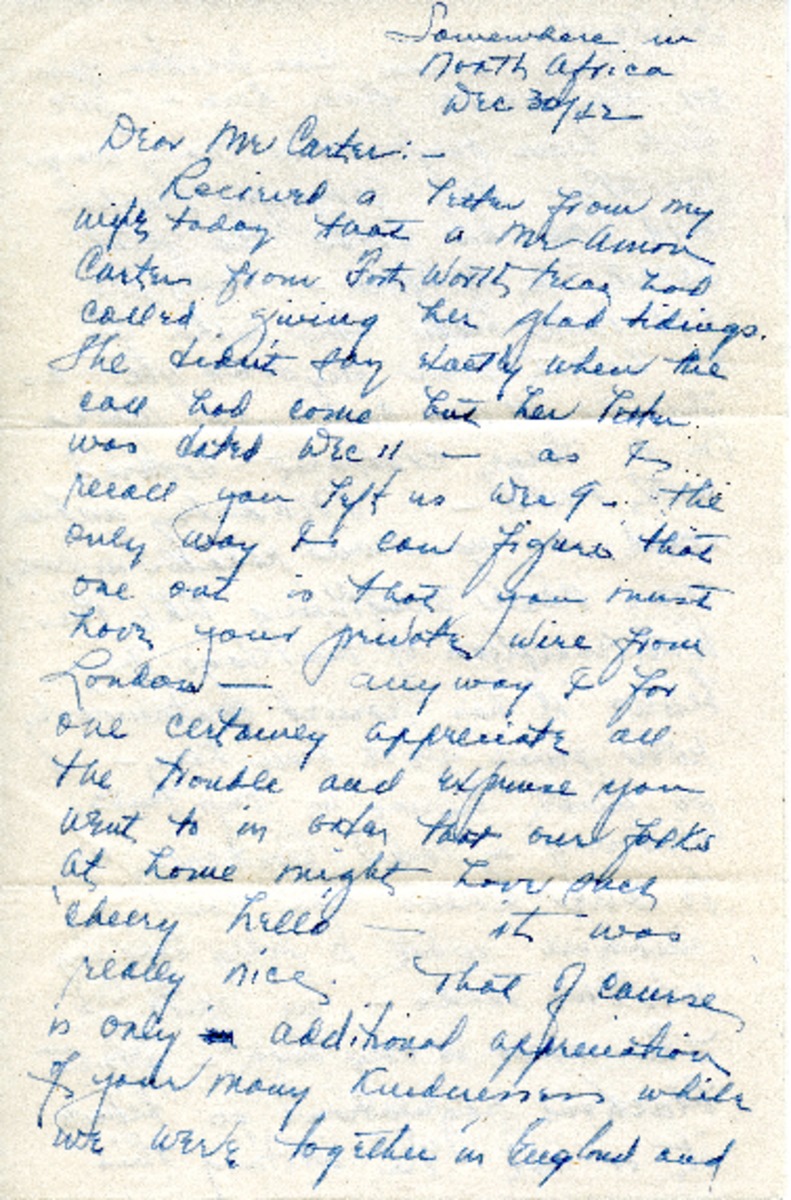 Somewhere in
North Africa
Dec 30/42
Dear Mr Carter:—
Recieved a letter from my
wife today that a Mr Amon
Carter from Fort Worth Texas had
called giving her glad tidings.
She didn't say exactly when the
call had come but her letter
was dated Dec 11 — as I
recall you left us Dec 9 - the
only way I can figure that
one out is that you must
have your private wire from
London — anyway I for
one certainly appreciate all
the trouble and expense you
went to in order that our folks
at home might have such
cheery hello — it was
really nice. That of course
is only additional appreciation
of your many kindnesses while
we were together in England and